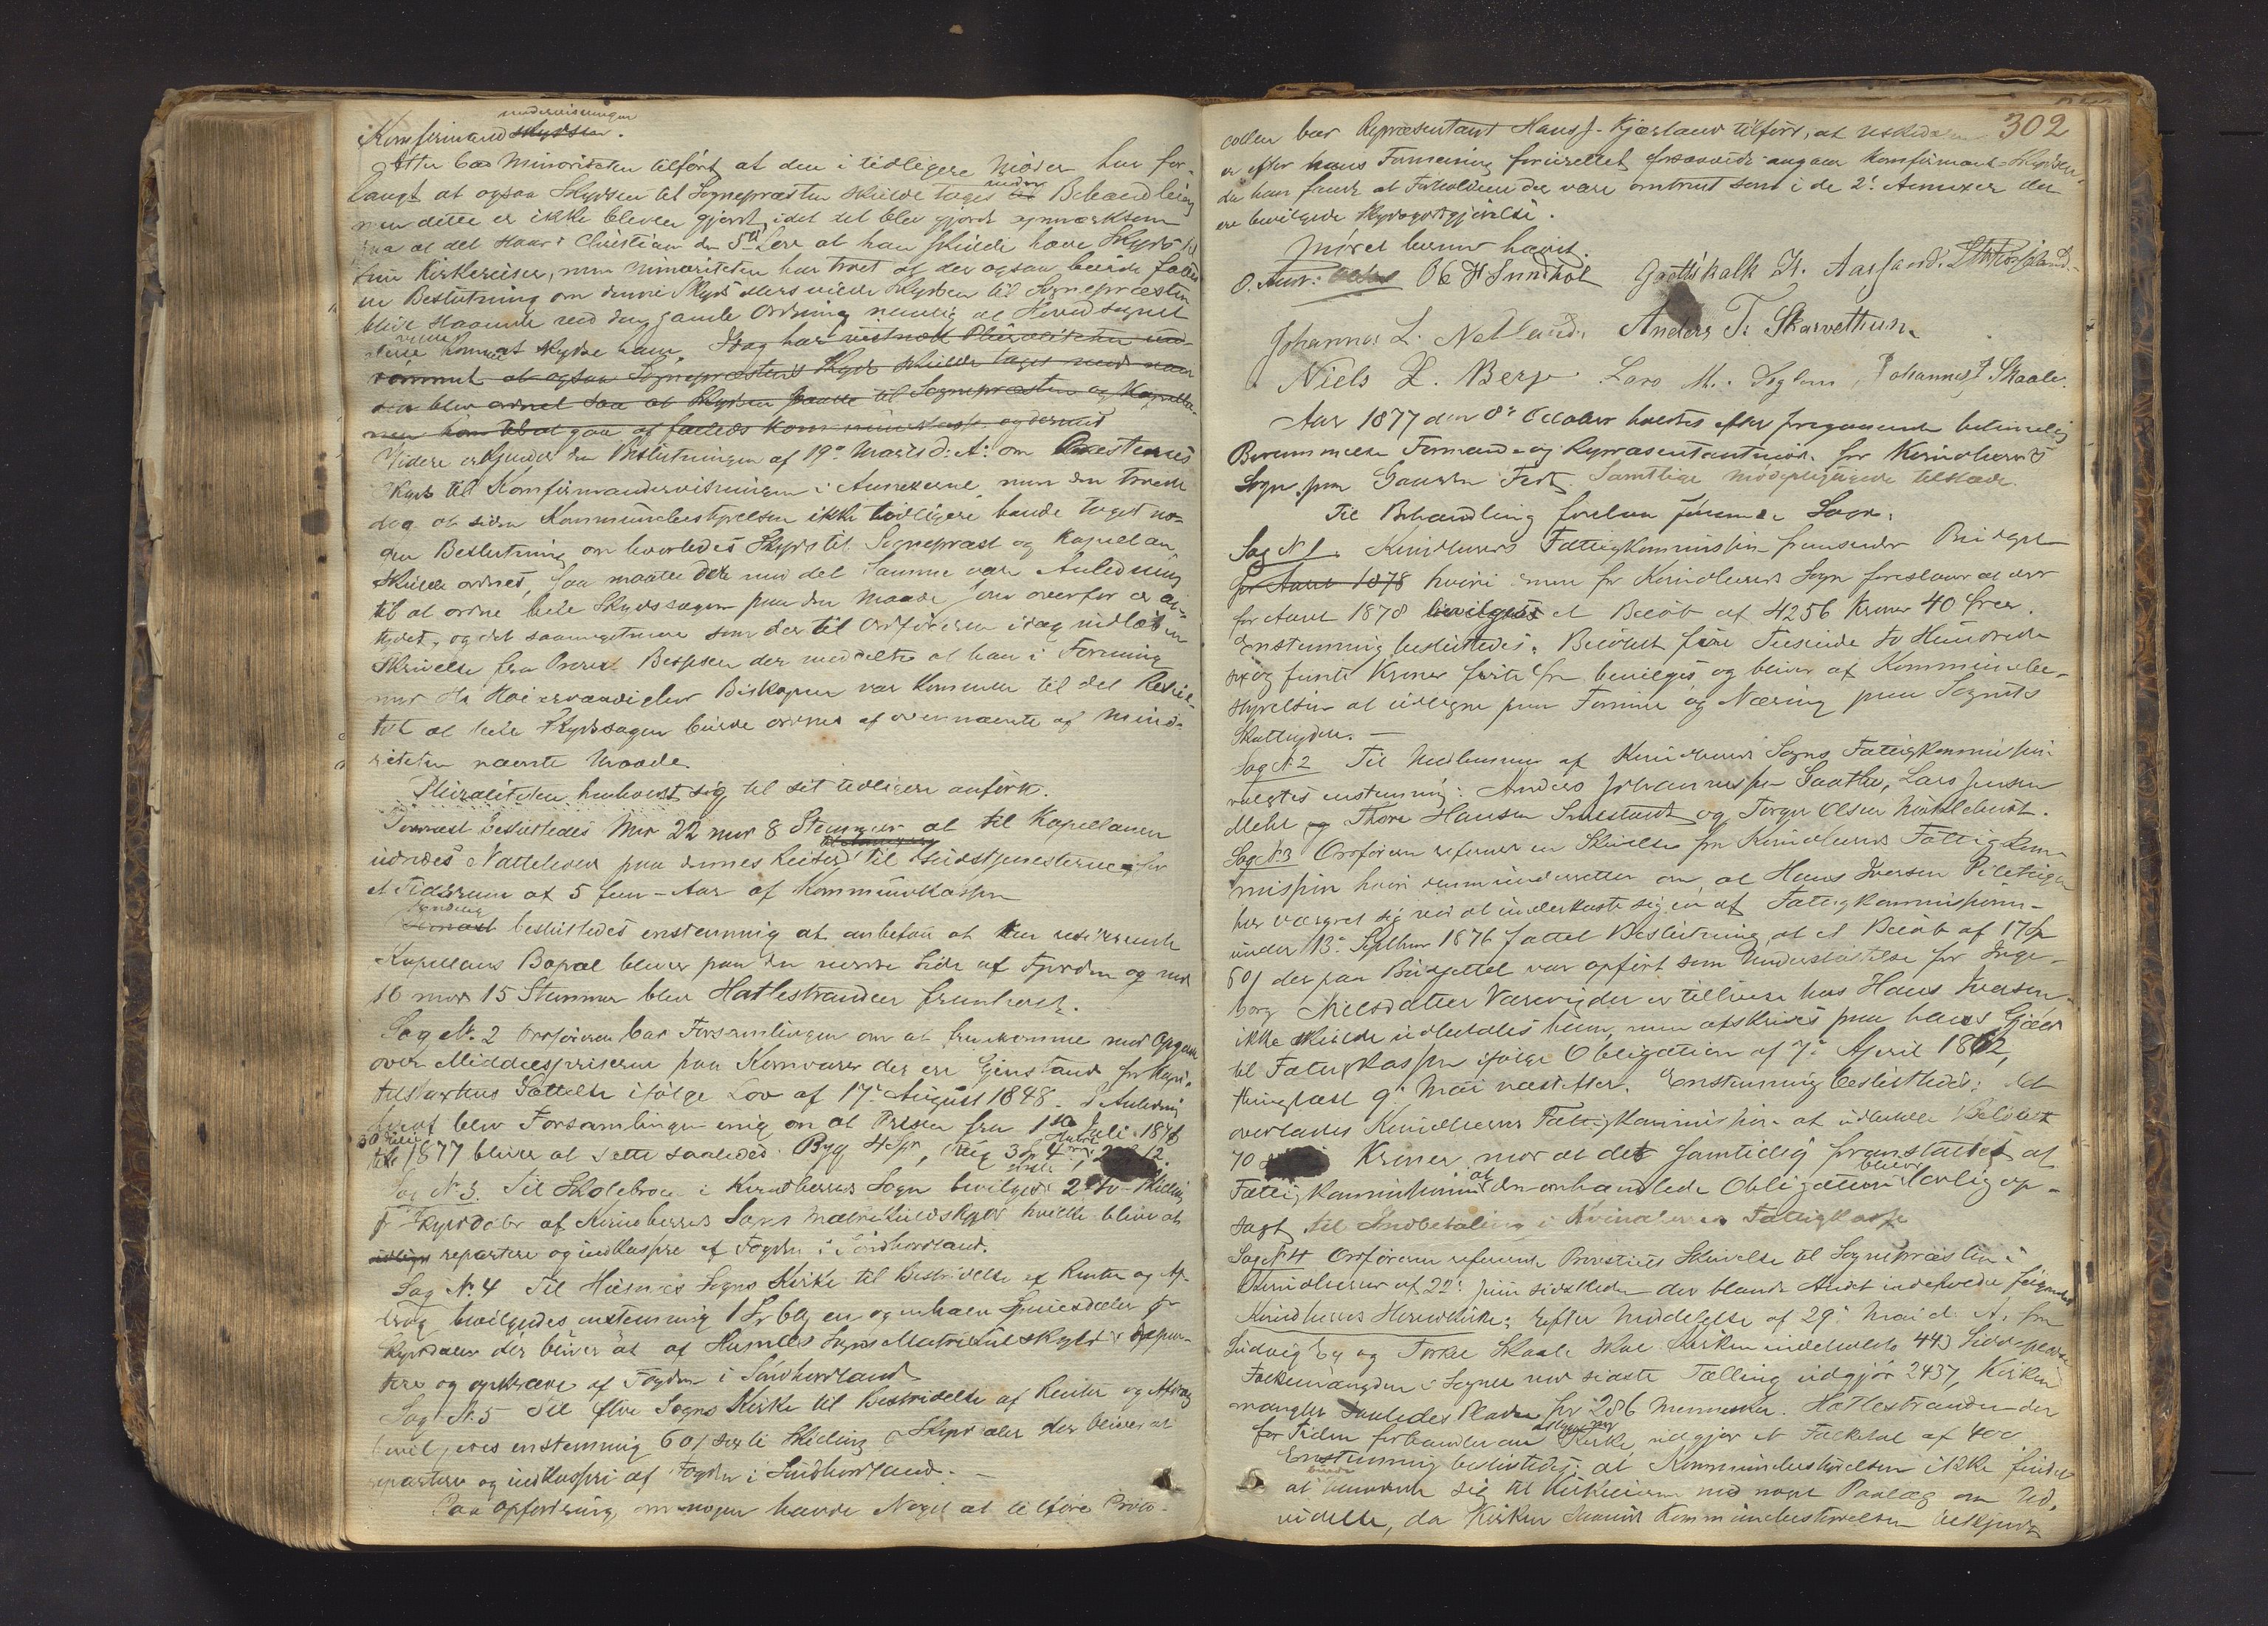 undervisningen
Konfirmand skydsen.
Atter bad Minoriteten tilført at den i tidligere Møder har for-
langt at ogsaa Skydsen til Sognepræsten skulde tages under Behandling
men dette er ikke blevet gjort, idet det blev gjort opmærksom
paa at det staar i Christian den 5tes Lov at han skulde have Skyds til
sine Kirkereiser, men Minoriteten har troet at der ogsaa burde fattes
en Beslutning om denne Skyds ellers vilde Skydsen til Sognepræsten
blive staaende ved den gamle Ordning nemlig at Hovedsognet
alene kommer at skydse ham. Idag har vistnok Pluraliteten ind-
rømmet at ogsaa Sognepræstens Skyds skulde tages med naar
det blev ordnet saa at Skydsen baade til Sognepræsten og Kapella-
nen kom til at gaa af fælleds Kommunekasse og dermed
Videre erkjender den Beslutningen af 19de Marts d. A. om Præsternes
Skyds til Konfirmandundervisningen i Annexerne, men den troede
dog at siden Kommunebestyrelsen ikke tidligere havde taget no-
gen Beslutning om hvorledes Skyds til Sognepræst og Kapellan
skulde ordnes, saa maatte der med det samme være Anledning
til at ordne hele Skydssagen paa den Maade som ovenfor er an-
tydet, og det saameget mere som der til Ordføreren idag indløb en
Skrivelse fra Provst Beyssen der meddelte at han i Forening
med Hs Høiærværdighed Biskopen var kommen til det Resul-
tat at hele Skydssagen burde ordnes af ovennævnte af Mino-
riteten nævnte Maade.
Pluraliteten henholdt sig til sit tidligere anførte.
Dernæst besluttedes med 22 mod 8 Stemmer at til Kapellanen
udredes Natteleie paa dennes Reiser til Gudstjenesterne for
et Tidsrum af 5 fem Aar af Kommunekassen
Endelig
Dernæst besluttedes enstemmig at anbefale at den residerende
Kapellans Bopæl bliver paa den nordre Side af Fjorden og med
16 mod 15 Stemmer blev Hatlestranden fremhævet.
Sag No. 2 Ordføreren bad Forsamlingen om at fremkomme med Opgave
over Middelspriserne paa Kornvarer der ere Gjenstand for Kapi-
telstaxtens Fattelse ifølge Lov af 17de August 1848. I Anledning
heraf blev Forsamlingen enig om at Prisen fra 1ste Juli 1876
til 30 Juni 1877 bliver at sætte saaledes: Byg 4 Spd, Rug 3 Spd 4 Havre 2
Sag No. 3. Til Skolebrug i Kvindherreds Sogn bevilges 2 to Skilling
pr Skyldaler af Kvindherreds Sogns Matrikulskyld hvilke bliver at
udligne repartere og indkassere af Fogden i Søndhordland.
Sag No. 4 Til Husnæs Sogns Kirke til Bestridelse af Renter og Af-
drag bevilgedes enstemmig 1 Spd 60 en og en halv Speciedaler pr
Skyldaler der bliver at af Husnæs Sogns Matrikulskyld at repar-
tere og opkræve af Fogden i Søndhordland
Sag No. 5 Til Ølve Sogns Kirke til Bestridelse af Renter og Afdrag
bevilgedes enstemmig 60 s sexti Skilling pr Skyldaler der bliver at
repartere og indkassere af Fogden i Søndhordland. —
Paa Opfordring om nogen havde Noget at tilføre Proto-
302
collen bad Repræsentant Hans J. Kjærland tilført, at Uskedalen
er efter hans Formening forurettet forsaavidt angaar Konfirmand-Skydsen,
da han fandt at Forholdene der vare omtrent som i de 2de Annexer der
ere bevilgede Skydsgodtgjørelse.
Mødet hermed hævet.
O. Andr: Ole H Sundhol Gaetskalk Kr. Aarsand.
Johannes L. Netland. Anders T. Skarvethun.
Niels H. Berge. Lars M. Seglem, Johannes J Skaale.
Aar 1877 den 8de October holdtes efter foregaaende betimelig
Berammelse Formands- og Repræsentantmøde for Kvindherreds
Sogn paa Gaarden Fet. Samtlige mødepligtigede tilstede.
Til Behandling forelaa følgende Sager:
Sag No 1. Kvindherreds Fattigkommission fremsender Budget
for Aaret 1878 hvori den for Kvindherreds Sogn foreslaar at der
for Aaret 1878 bevilges et Beløb af 4256 Kroner 40 Øre.
Enstemmig besluttedes: Beløbet fire Tusinde to Hundrede
sex og femti Kroner førti Øre bevilges og bliver af Kommunebe-
styrelsen at udligne paa Formue og Næring paa Sognets
Skatteydere. —
Sag No 2 Til Medlemmer af Kvindherreds Sogns Fattigkommission
valgtes enstemmig: Anders Johannessen Guathe, Lars Jensen
Mehl og Thore Hansen Sundstvedt og Torger Olsen Malkenes.
Sag No 3 Ordføreren refererede en Skrivelse fra Kvindherreds Fattigkom-
mission hvori denne underretter om, at Hans Iversen
har værgret sig ved at underkaste sig en af Fattigkommissionen
under 13de Septbr 1876 fattet Beslutning, at et Beløb af 17 Spd
60 s der paa Budgettet var opført som Understøttelse for Inge-
borg Nielsdatter Varevig der er tilhuse hos Hans Iversen
ikke skulde udbetales ham, men afskrives paa hans Gjæld
til Fattigkassen ifølge Obligation af 7de April 1862,
thinglæst 9de Mai næstefter. Enstemmig besluttedes: det
overlades Kvindherreds Fattigkommission at udbetale Beløbet
70 Kroner mod at det samtidig foranstaltes af
Fattigkommissionen at den omhandlede Obligation bliver lovlig op-
sagt til Indbetaling i Kvindherreds Fattigkasse
Sag No 4 Ordføreren refererede Provstiets Skrivelse til Sognepræsten i
Kvindherred af 22de Juni sidstleden der blandt Andet indeholder følgende:
Kvindherreds Hovedkirke: Efter Meddelelse af 29de Mai d. A. fra
Ludvig Eg og Torkel Skaale skal Kirken indeholde 443 Siddepladse
Folkemængden i Sognet ved sidste Tælling udgjør 2437, Kirken
mangler saaledes Pladse for 286 Mennesker. Hatlestranden der
for Tiden forhandler om Kirke, udgjør et Folketal af 400
Enstemmig besluttedes: at Kommunebestyrelsen ikke finder
at burde henvende sig til Kirkeeieren med noget Paalæg om Ud-
videlse, da Kirken efter Kommunebestyrelsens Bekjendt